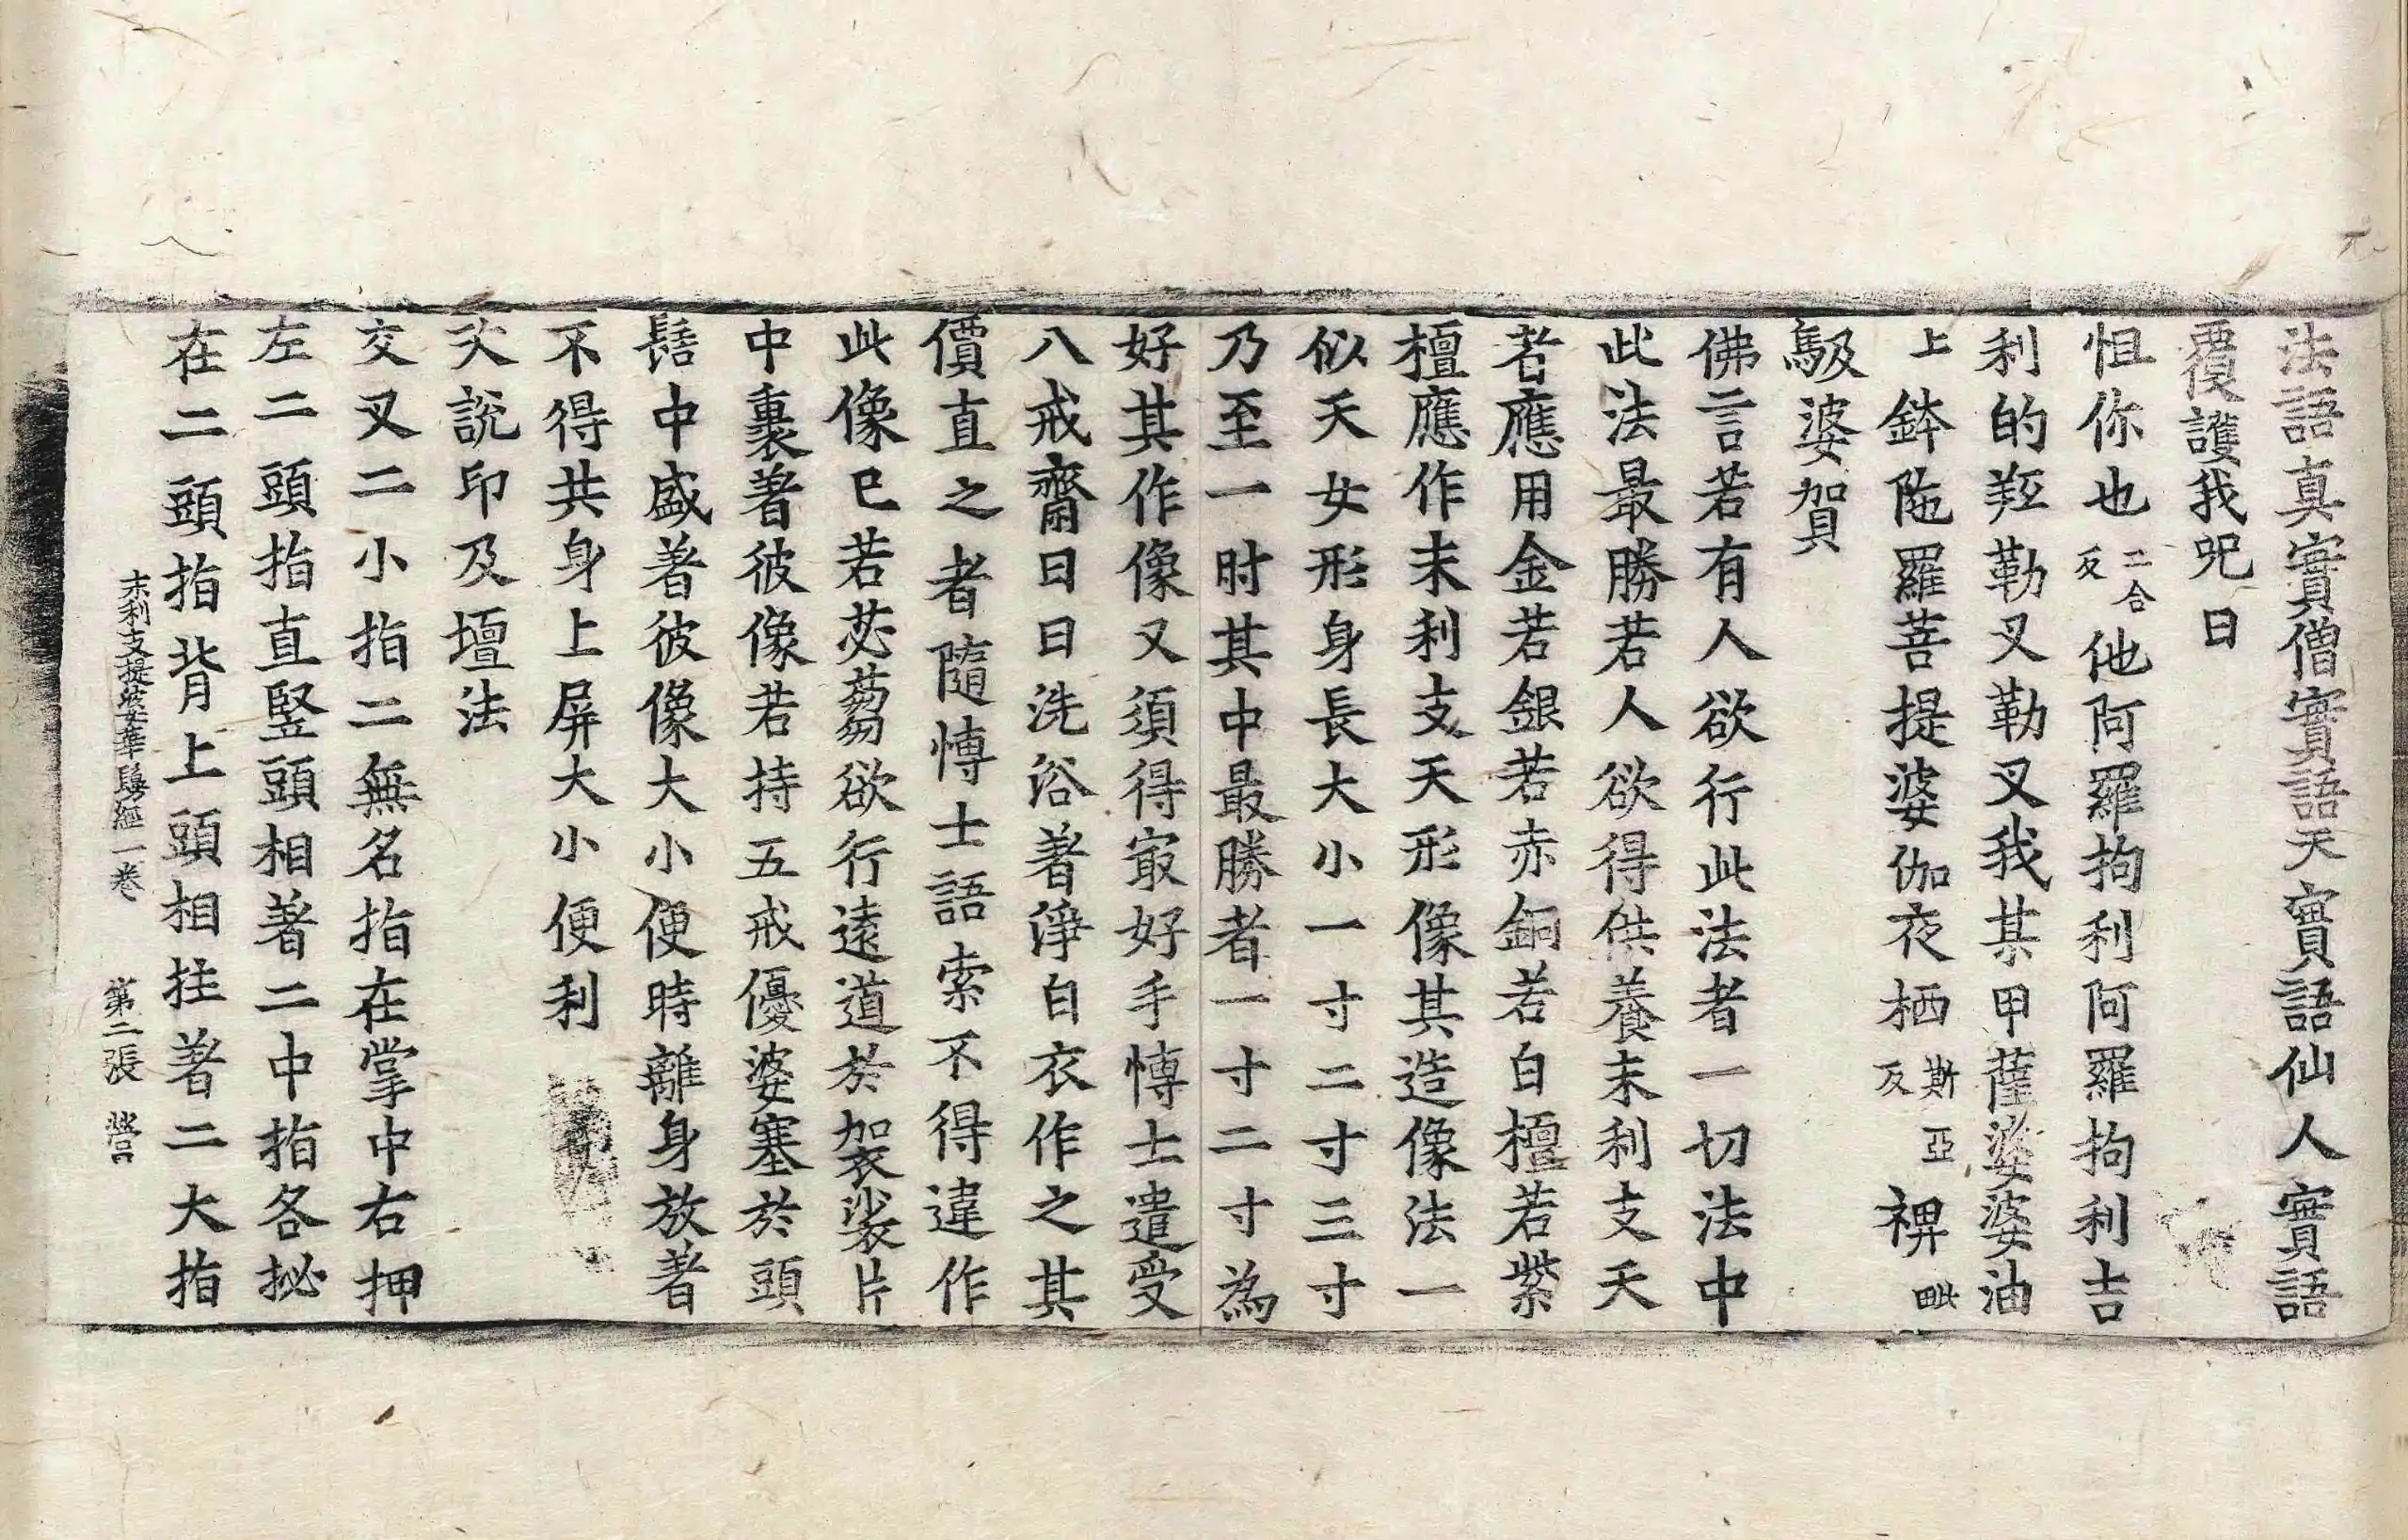 法語真實僧實語天實語仙人實語
覆護我呪曰
怛你也二合反他阿羅拘利阿羅拘利吉
利的羫勒叉勒叉我某甲薩婆婆油
上鉢陁羅菩提婆伽夜栖斯亞反禆毗
馺婆賀
佛言若有人欲行此法者一切法中
此法最勝若人欲得供養末利支天
者應用金若銀若赤銅若白檀若紫
檀應作末利支天形像其造像法一
似天女形身長大小一寸二寸三寸
乃至一肘其中最勝者一寸二寸為
好其作像又須得㝡好手愽士遣受
八戒齋日日洗浴著淨白衣作之其
價直之者隨愽士語索不得違作
此像已若苾蒭欲行逺道於袈裟片
中裹著彼像若持五戒優婆塞於頭
髻中盛著彼像大小便時離身放著
不得共身上屏大小便利
次説印及壇法
交叉二小指二無名指在掌中右押
左二頭指直竪頭相著二中指各拟
在二頭指背上頭相拄著二大指
末利支提婆華鬘經一卷　第二張　營